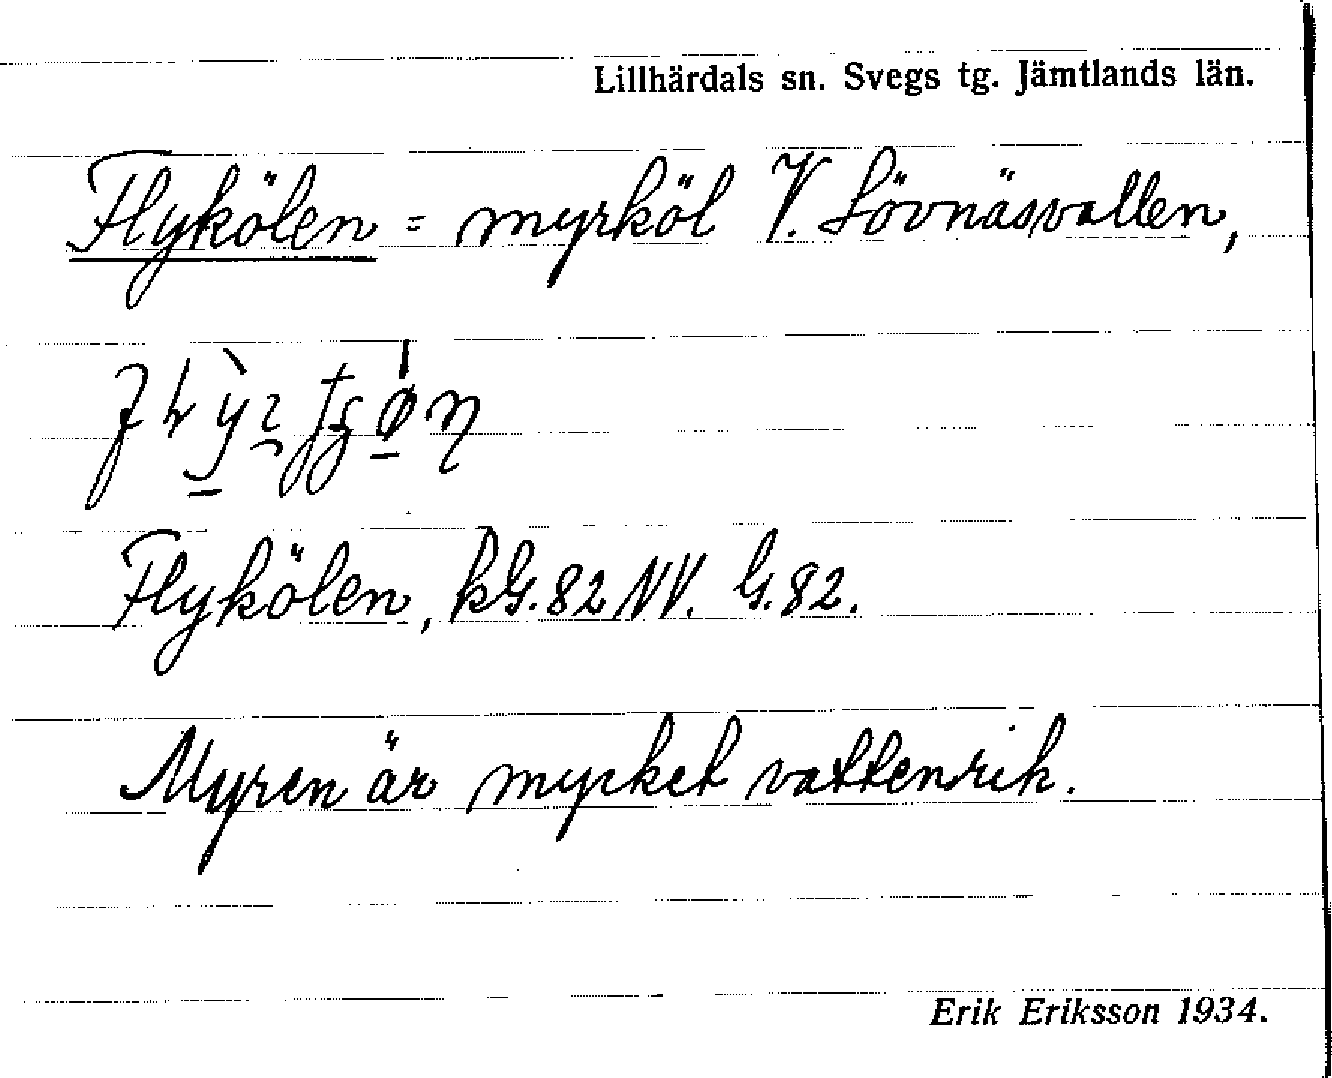 Lillhärdals sn. Svegs tg. Jämtlands län.
Flykölen = myrköl V. Lövnäsvallen,
Flykölen, kG. 82 NV. G. 82.
Myren är mycket vattenrik.
Erik Eriksson 1934.